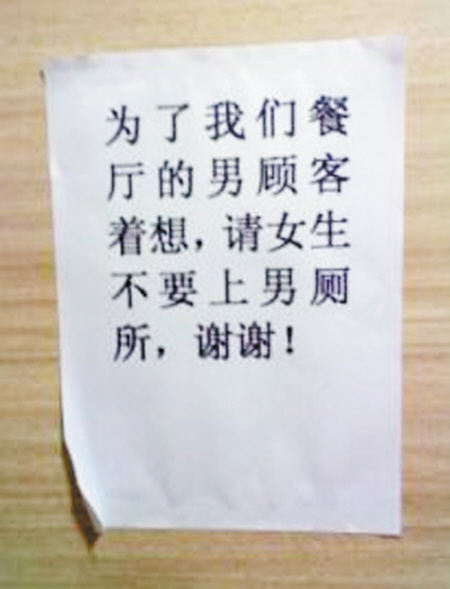 为了我们餐
厅的男顾客
着想，请女生
不要上男厕
所，谢谢！